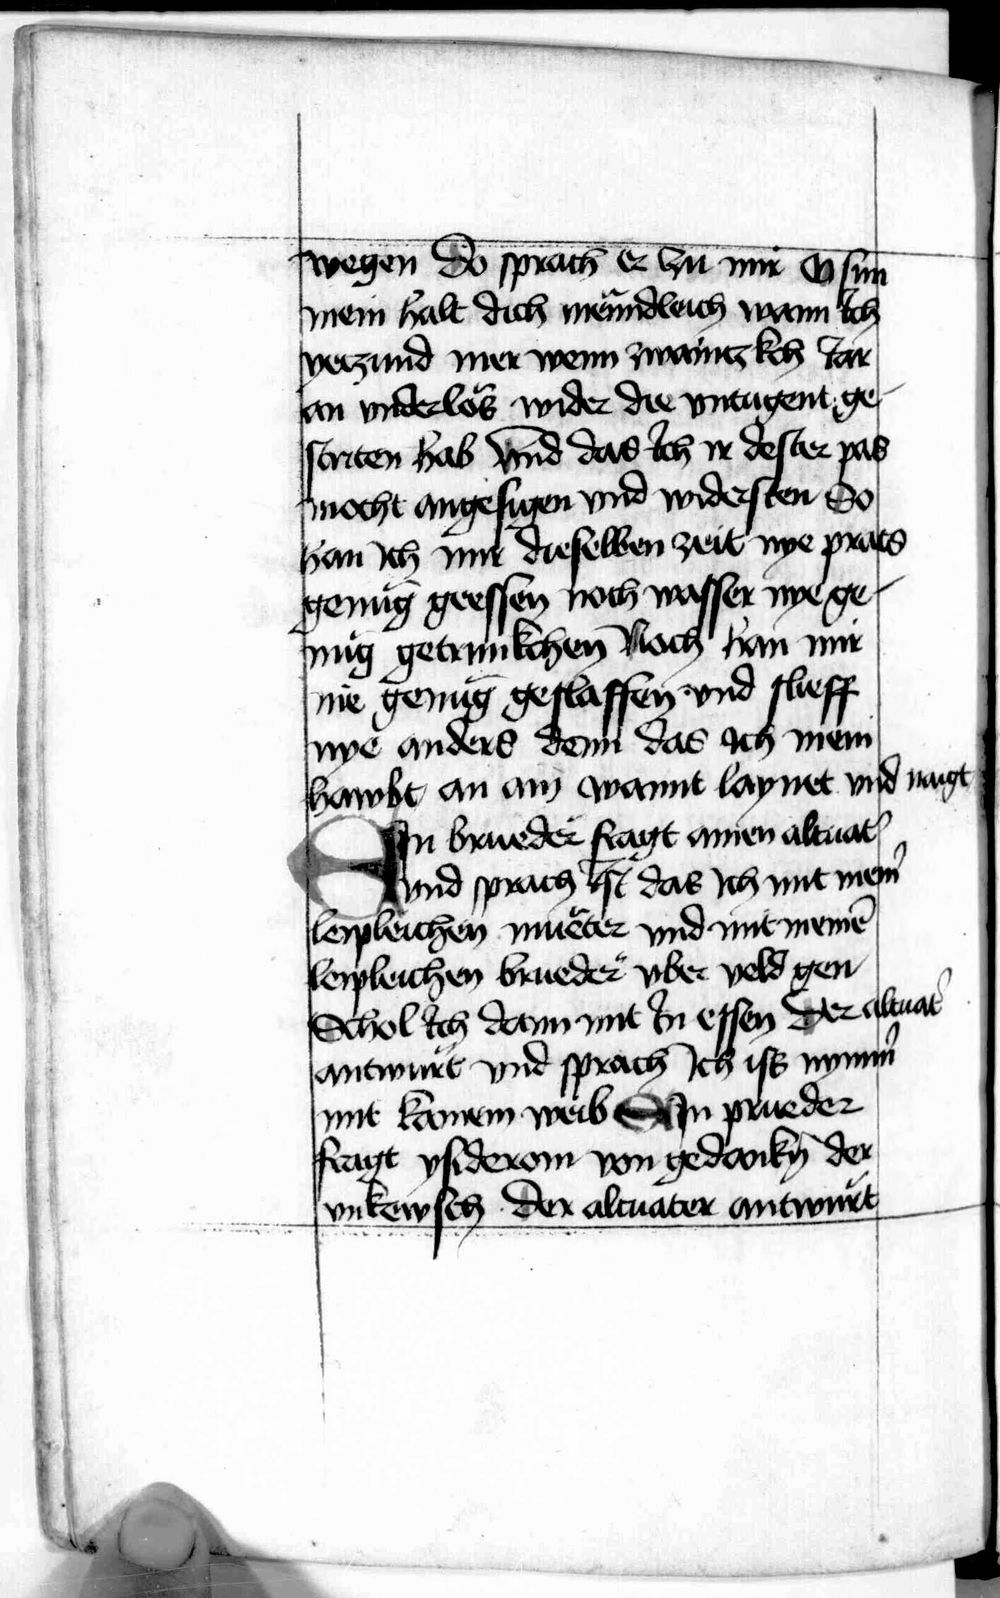 wegen Do sprach er zu mir O sun
mein halt dich freuͤndleich wann Ich
yeczund mer wenn zwainczkch Iar
an vnderloͤs wider die vntugent ge-
striten hab Vnd das Ich ir dester pas
mocht angesigen vnd widersten So
han ich mir dieselben zeit nye prats
genuͤg geessen noch wasser nye ge-
nuͤg getrunkchen Noch han mir
nie genuͤg geslaffen vnd slieff
nye anders denn das Ich mein
hawbt an ain wannt laynet vnd naigt
Ain brueder fragt ainen altuat᷑
vnd sprach Ist das Ich mit mein᷑
leipleichen mueter vnd mit meinē
leipleichen brueder vber veld gen
Schol Ich dann mit In essen Der altuat᷑
antwurt vnd sprach Ich iss nymm᷑
mit kainem weib Ain prueder
fragt ysiderom von gedankn̄ der
vnkewsch Der altuater antwurt